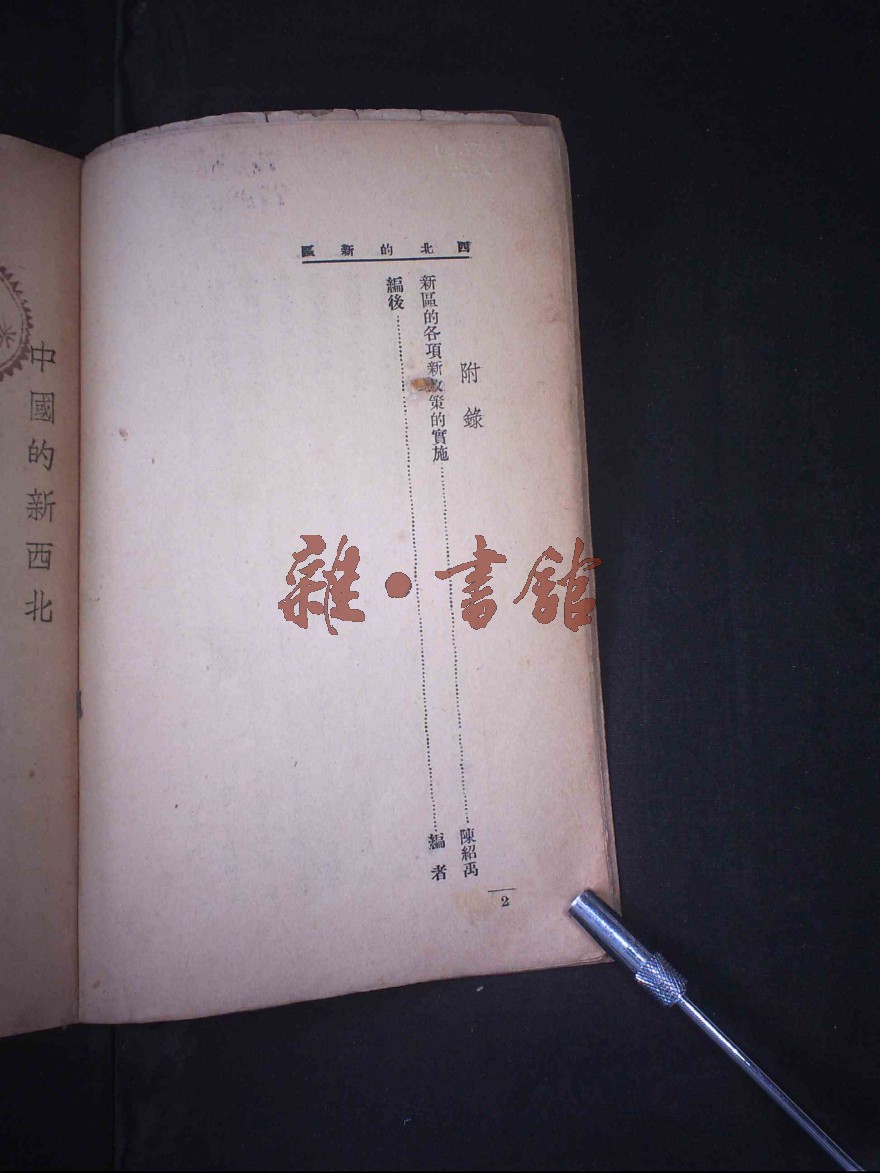 西北的新區
附錄
新區的各項新政策的實施……陳紹禹
編後……編者
2
中國的新西北
雜·書館